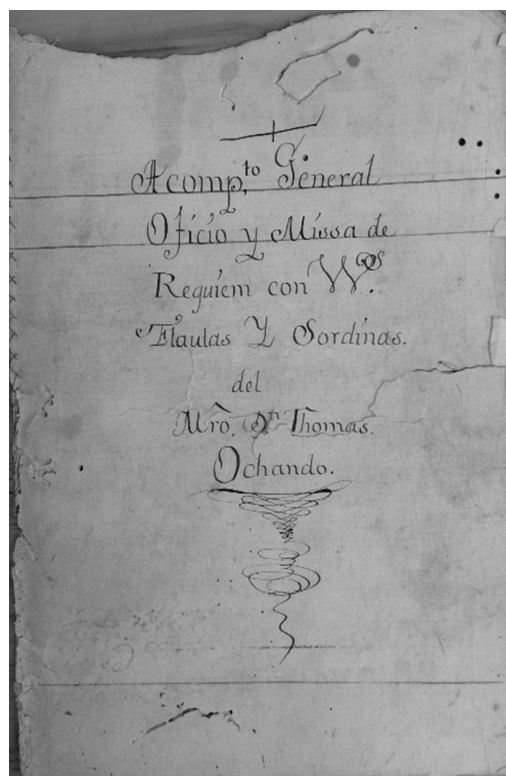 Acomp.to General
Oficio y Missa de
Requiem con VVs.
Flautas Y Sordinas.
del
Mro. Dn Thomas.
Ochando.